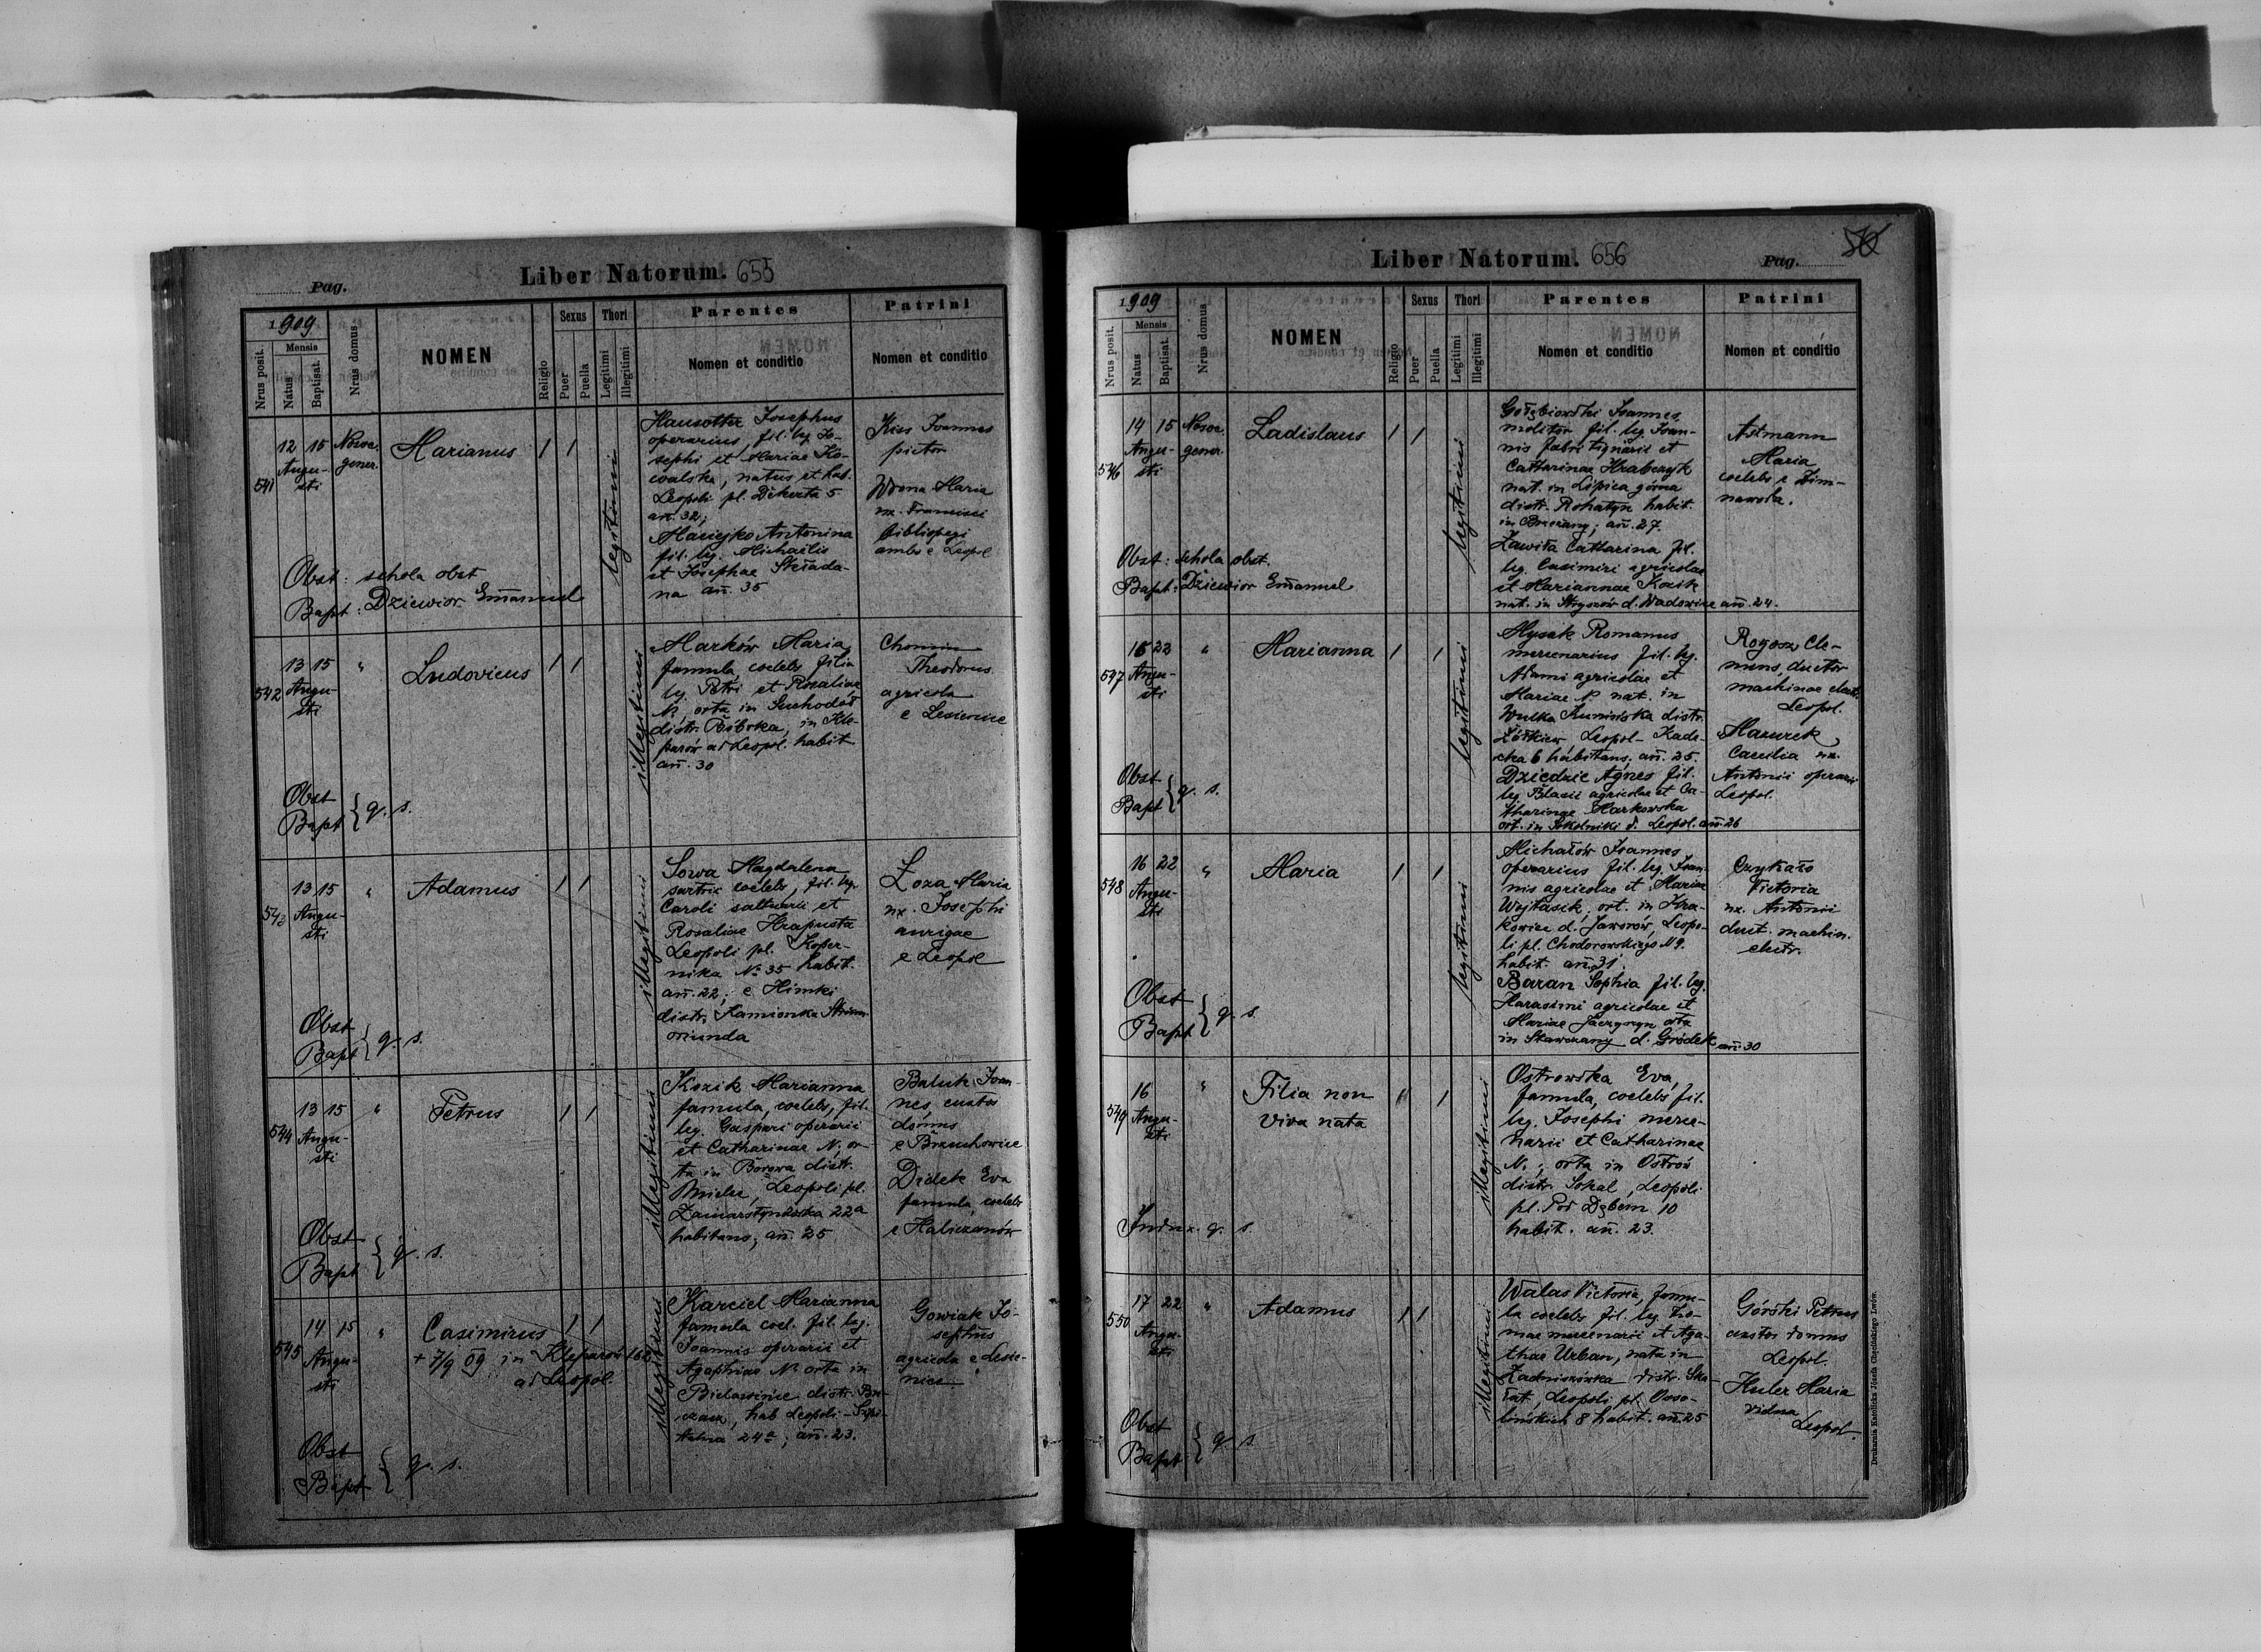 Pag.
Liber Natorum. 655
1909
Nrus posit.
Mensis
Natus
Baptisat.
Nrus domus
NOMEN
Religio
Sexus
Puer
Puella
Thori
Legitimi
Illegitimi
Parentes
Nomen et conditio
Patrini
Nomen et conditio
541
12 15
Augu-
sti
Nosoc.
gener.
Marianus
1 1
legitimi
Hausotter Josephus
operarius, fil. leg. Jo-
sephi et Mariae Ko-
walska, natus et hab.
Leopoli pl. Dekerta 5
an. 32;
Maciejko Antonina
fil. leg. Michaelis
et Josephae Skrada-
na an. 35
Kiss Joannes
pictor
Wrona Maria
ux. Francisci
bibliopegi
ambo e Leopol
Obst: schola obst
Bapt: Dziewior Emanuel
542
13 15
Augu-
sti
"
Ludovicus
1 1
illegitimi
Marków Maria
famula, coelebs filia
leg. Petri et Rosaliae
N, orta in Suchodół
distr. Bóbrka, in Kle-
parów ad Leopol. habit
an. 30
Theodorus
agricola
e Lesienice
Obst
Bapt } q. s.
543
13 15
Augu-
sti
"
Adamus
1 1
illegitimi
Sowa Magdalena
sartrix coelebs, fil. leg.
Caroli saltuarii et
Rosaliae Hrapusta
Leopoli pl. Koper-
nika No 35 habit.
an. 22; e Himki
distr. Kamionka Strum.
oriunda
Łoza Maria
ux. Josephi
aurigae
e Leopol
Obst
Bapt } q. s.
544
13 15
Augu-
sti
"
Petrus
1 1
illegitimi
Kozik Marianna
famula, coelebs, fil.
leg. Gaspari operarii
et Catharinae N, or-
ta in Borowa distr.
Mielec, Leopoli pl.
Zamarstynowska 22a
habitans, an. 25
Baluk Joan-
nes, custos
domus
e Brzuchowice
Didek Eva
famula, coelebs
e Haliczanów
Obst
Bapt } q. s.
545
14 15
Augu-
sti
"
Casimirus
+ 7/9 09 in Kleparów 162
ad Leopol.
1 1
illegitimi
Karciel Marianna
famula coel. fil. leg.
Joannis operarii et
Agaphiae N orta in
distr. Brze-
hab Leopoli - Szpi-
talna 24a; an. 23.
Gowiak Jo-
sephus
agricola e Lesie-
nice
Obst
Bapt } q. s.
Liber Natorum. 656
Pag.
50
1909
Nrus posit.
Mensis
Natus
Baptisat.
Nrus domus
NOMEN
Religio
Sexus
Puer
Puella
Thori
Legitimi
Illegitimi
Parentes
Nomen et conditio
Patrini
Nomen et conditio
546
14 15
Augu-
sti
Nosoc.
gener.
Ladislaus
1 1
legitimi
Gołębiowski Joannes
molitor fil. leg. Joan-
nis fabri tignarii et
Catharinae Hrabczyk
nat. in Lipica górna
distr. Rohatyn habit.
in Brzezany; an. 27.
Zawiła Catharina fil.
leg. Casimiri agricolae
et Mariannae Kozik
nat. in Stryszów d. Wadowice an. 24.
Astmann
Maria
coelebs e Zim-
nawoda.
Obst: schola obst.
Bapt: Dziewior Emanuel
547
15 22
Augu-
sti
"
Marianna
1 1
legitimi
Hysak Romanus
mercenarius fil. leg.
Adami agricolae et
Mariae N nat. in
Wulka Kunińska distr.
Żółkiew Leopol - Kade-
cka 6 habitans, an. 25.
Dziedzic Agnes fil.
leg. Blasii agricolae et Ca-
tharinae Markowska
ort. in Sokolniki d. Leopol. an. 26
Rogosz Cle-
mens, ductor
machinae electr.
Leopol.
Mazurek
Caecilia ux.
Antonii operarii
Leopol.
Obst
Bapt } q. s.
548
16 22
Augu-
sti
"
Maria
1 1
legitimi
Michałów Joannes
operarius fil. leg. Joan-
nis agricolae et Mariae
Wojtasik, ort. in Kra-
kowiec d. Jaworów, Leopo-
li pl. Chodorowskiego N 9.
habit. an. 31.
Baran Sophia fil. leg.
Harasimi agricolae et
Mariae Jaczyszyn orta
in Stawczany d. Gródek an. 30
Czykało
Victoria
ux. Antonii
duct. machin.
electr.
Obst
Bapt } q. s.
549
16
Augu-
sti
"
Filia non
viva nata
" 1
illegitimi
Ostrowska Eva,
famula, coelebs fil.
leg. Josephi merce-
narii et Catharinae
N.; orta in Ostrów
distr. Sokal, Leopoli
pl. Pod Dębem 10
habit. an. 23.
q. s.
550
17 22
Augu-
sti
"
Adamus
1 1
illegitimi
Walas Victoria, famu-
la coelebs fil. leg. Tho-
mae mercenarii et Aga-
thae Urban, nata in
Zadniszówka distr. Ska-
łat, Leopoli pl. Osso-
lińskich 8 habit. an. 25
Górski Petrus
custos domus
Leopol.
Huler Maria
vidua
Leopol.
Obst
Bapt } q. s.
Drukarnia Katolicka Józefa Chęcińskiego Lwów.